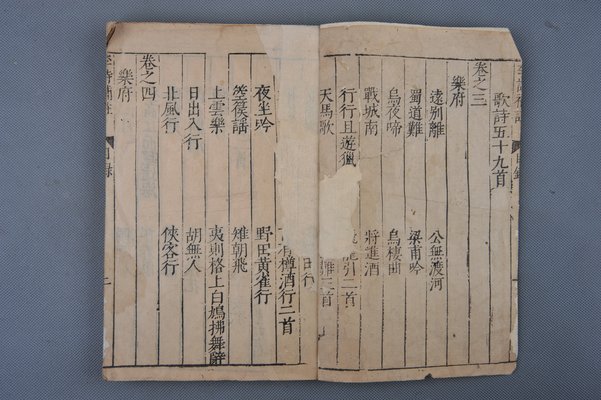 歌詩五十九首
卷之三
樂府
遠別離 公無渡河
蜀道難 梁甫吟
烏夜啼 烏棲曲
戰城南 將進酒
行行且遊獵 龍引二首
天馬歌 難三首
田行
有樽酒行二首
夜坐吟 野田黃雀行
箜篌謠 雉朝飛
上雲樂 夷則格上白鳩拂舞辭
日出入行 胡無人
北風行 俠客行
卷之四
樂府
目錄